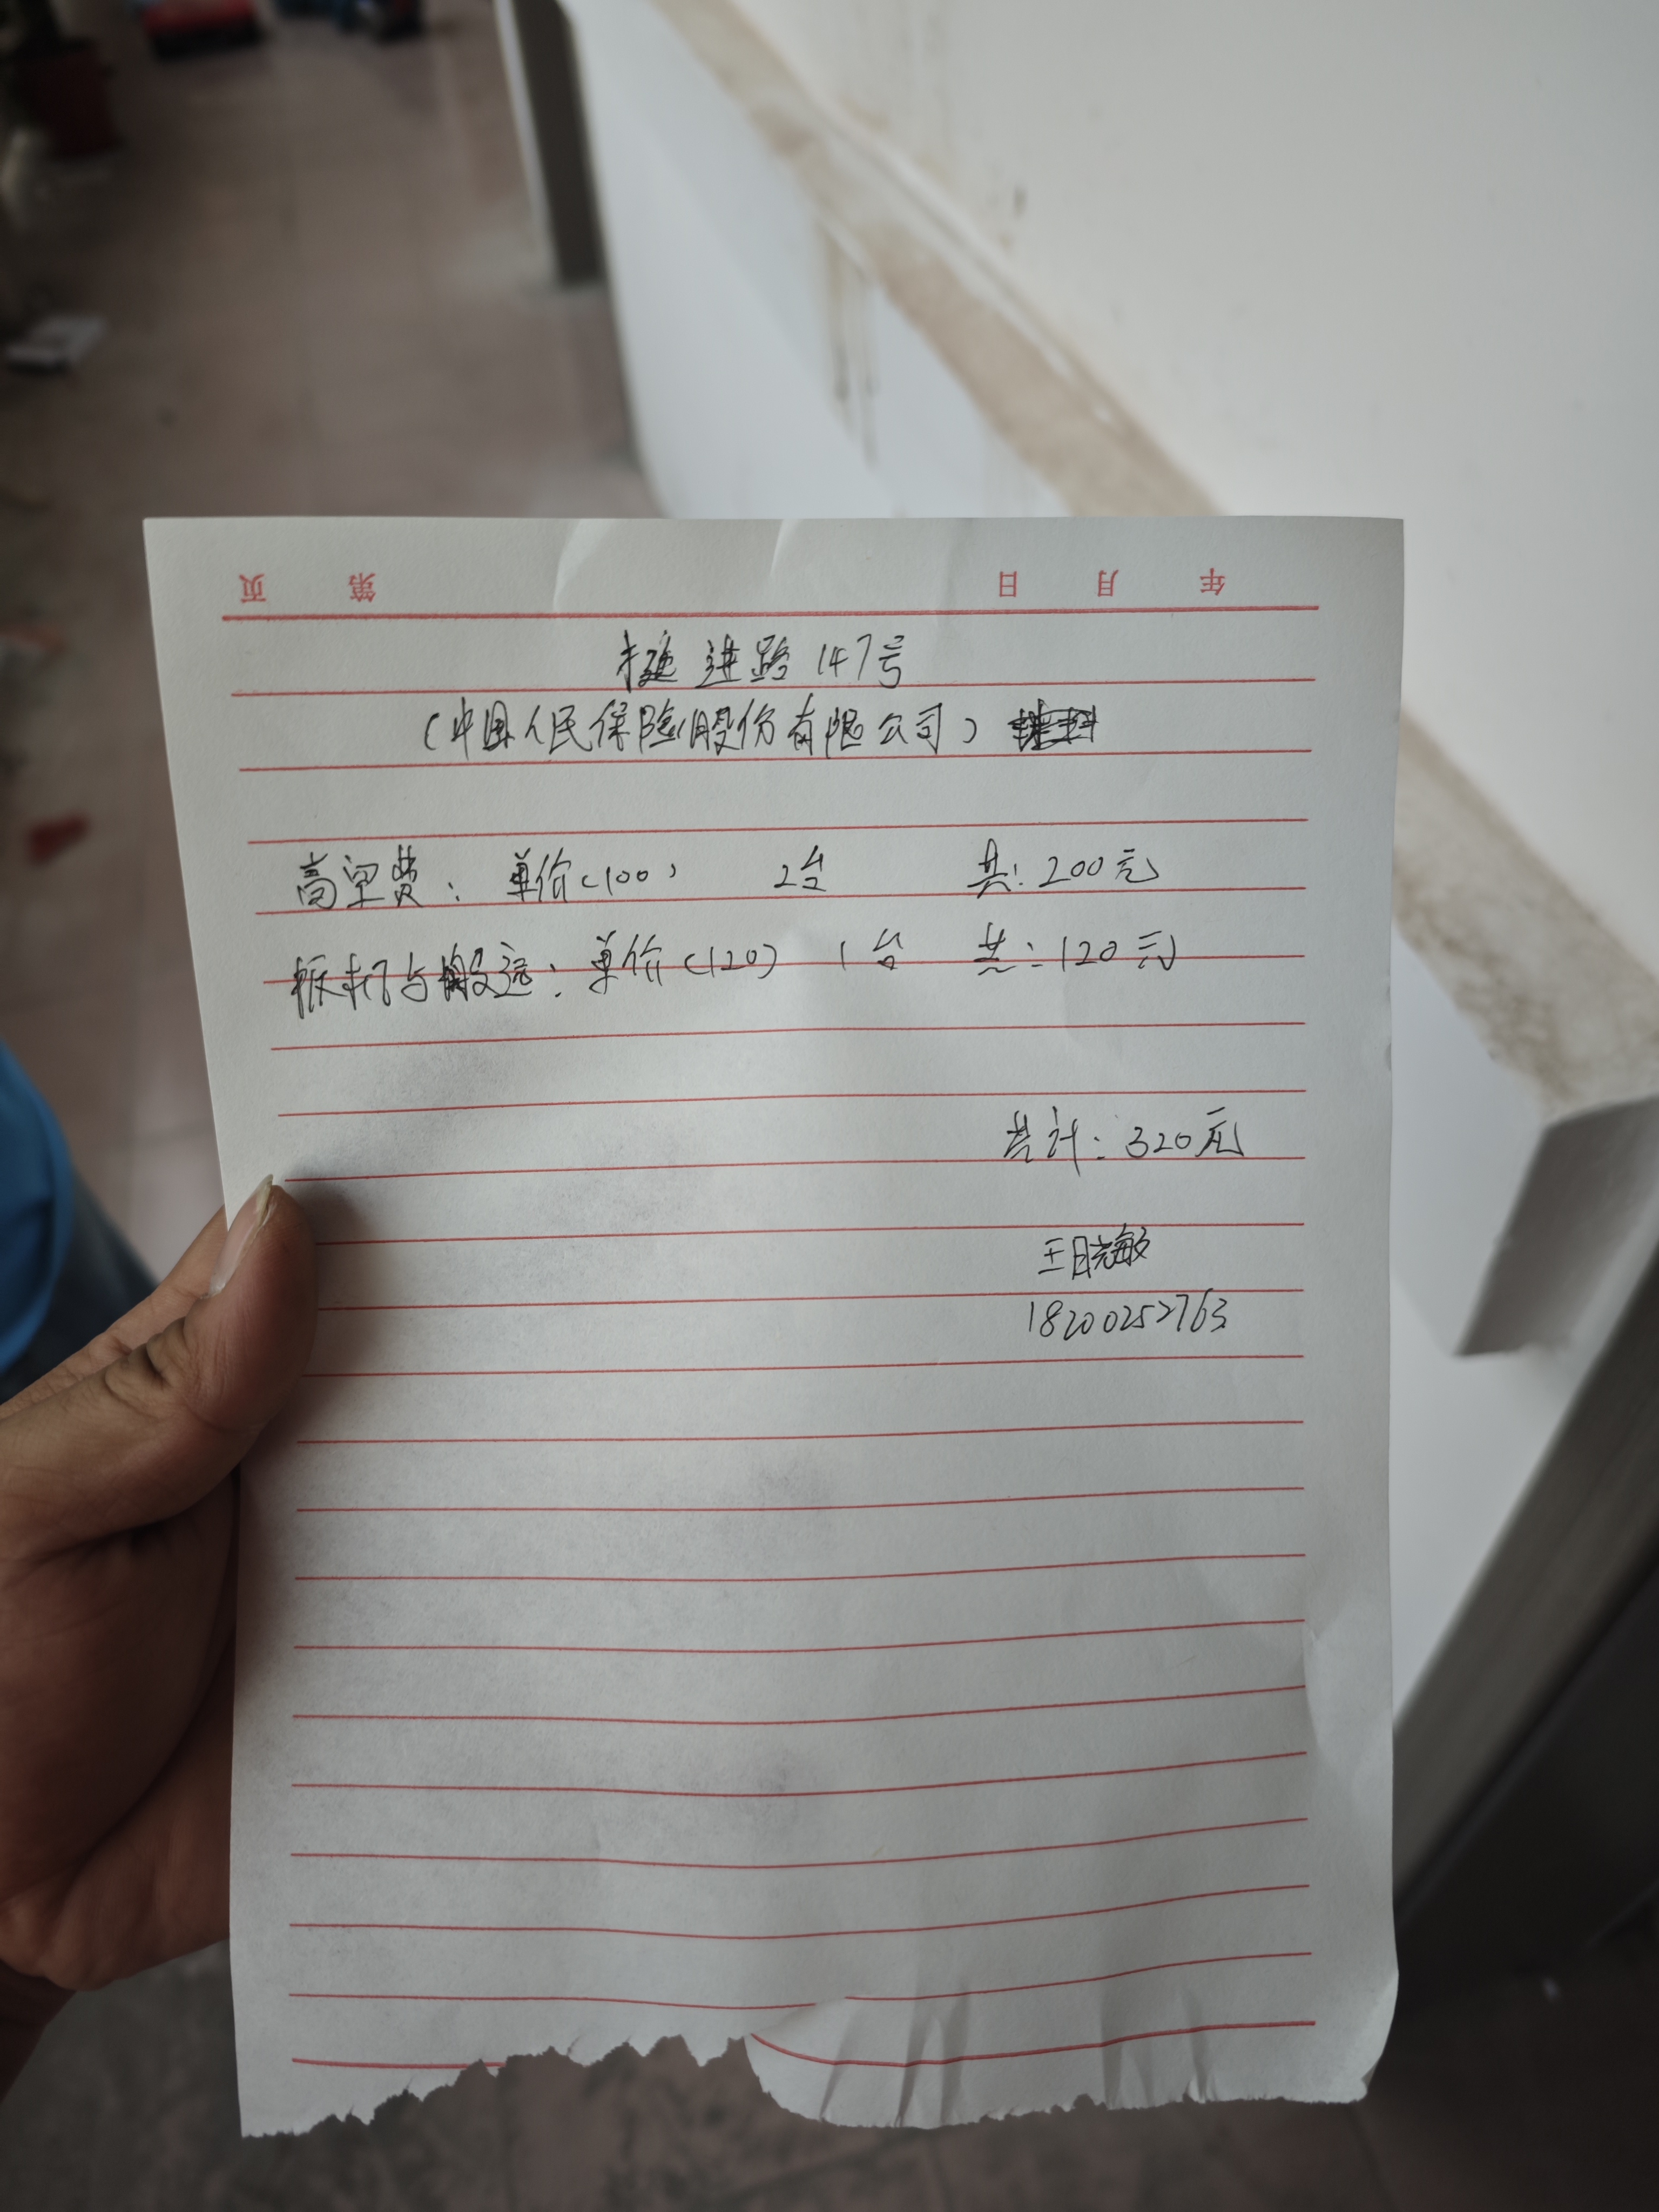 页 第 日 月 年
挺进路147号
(中国人民保险股份有限公司)
高空费: 单价(100) 2台 共: 200元
拆机与搬运: 单价(120) 1台 共: 120元
共计: 320元
王晓敏
18200252763